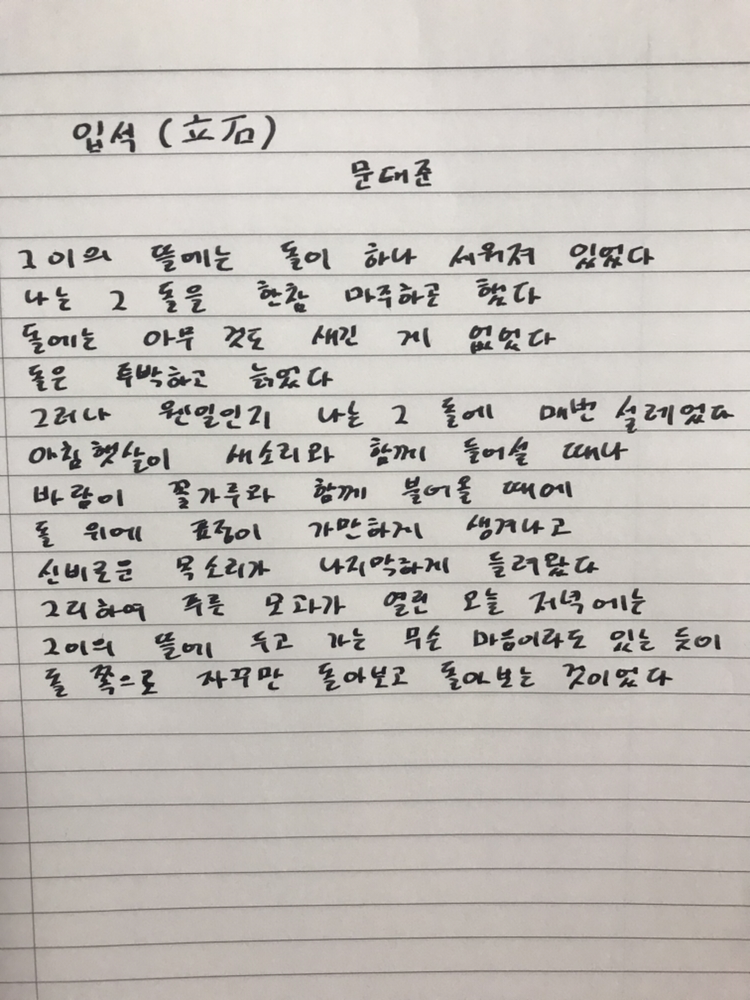 입석 (立石)
문대준
그이의 뜰에는 돌이 하나 세워져 있었다
나는 그 돌을 한참 마주하곤 했다
돌에는 아무 것도 새긴 게 없었다
돌은 투박하고 늙었다
그러나 웬일인지 나는 그 돌에 매번 설레었다
아침햇살이 새소리와 함께 들어설 때나
바람이 꽃가루와 함께 불어올 때에
돌 위에 표정이 가만하게 생겨나고
신비로운 목소리가 나지막하게 들려왔다
그리하여 푸른 모과가 열린 오늘 저녁에는
그이의 뜰에 두고 가는 무슨 마음이라도 있는 듯이
돌 쪽으로 자꾸만 돌아보고 돌아보는 것이었다